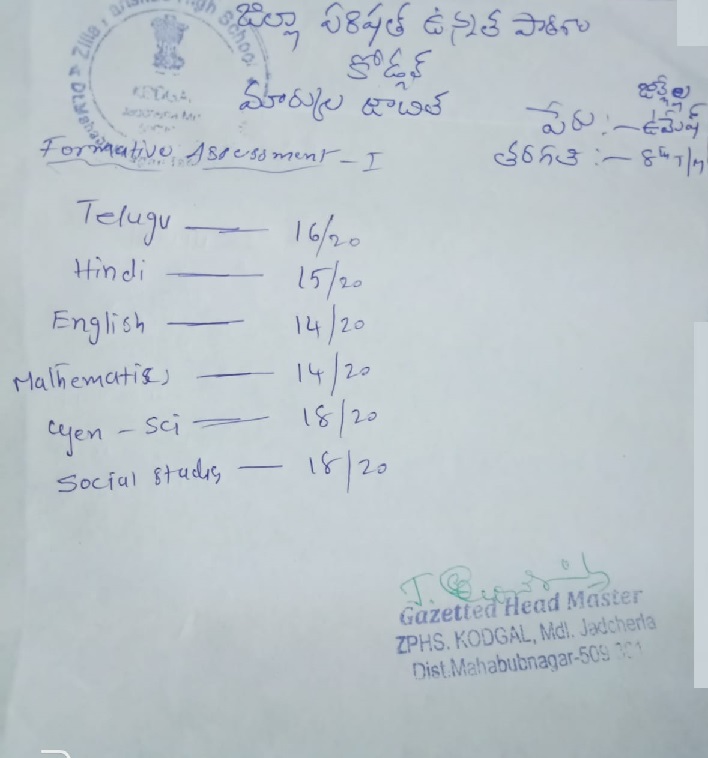 Zilla High School
జిల్లా పరిషత్ ఉన్నత పాఠశాల
KODGAL
కోడ్గల్
మార్కుల జాబిత
పేరు :- ఉమేష్
Formative Assessment - I
తరగతి :- 8th T/M
Telugu — 16/20
Hindi — 15/20
English — 14/20
Mathematics — 14/20
Gen - Sci — 18/20
Social Studies — 18/20
Gazetted Head Master
ZPHS. KODGAL, Mdl. Jadcherla
Dist.Mahabubnagar-509 301